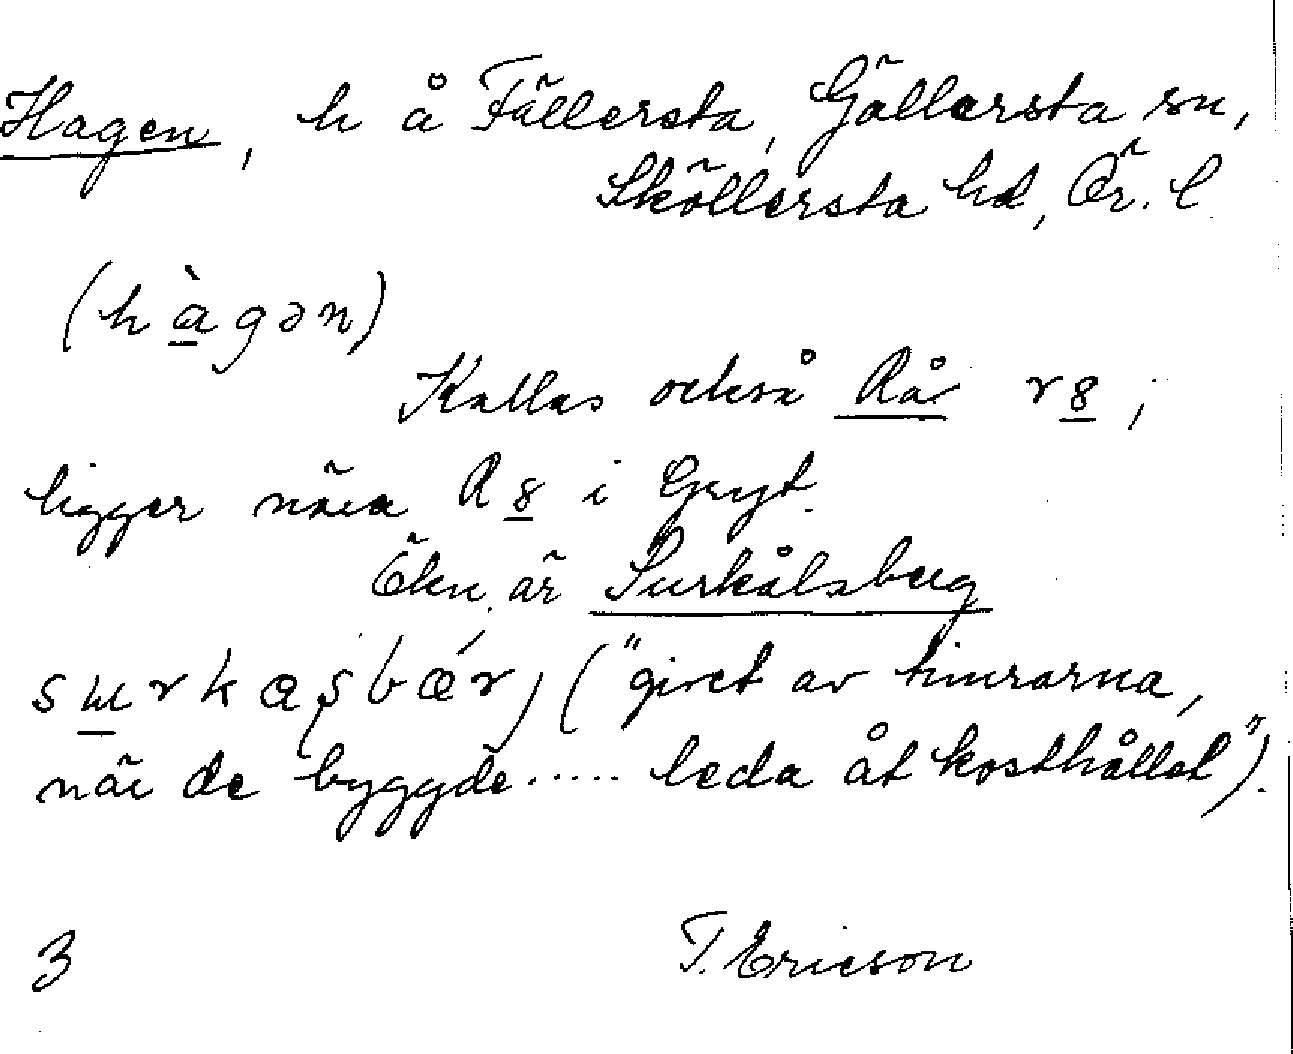 Hagen, h å Fällersta, Gällersta sn,
Sköllersta hd, Ör. l.
(hàgən)
Kallas också Rå r8;
ligger nära R8 i Gryt.
Ökn. är Surkålsberg
surkaʂbǽr, ("givet av timrarna,
när de byggde ..... leda åt kosthållet").
3 T. Ericson